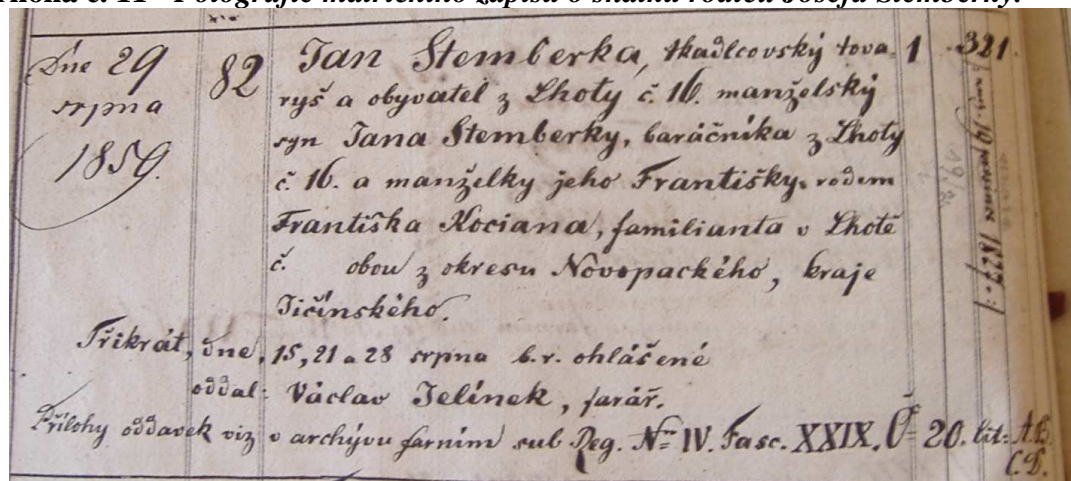 č. 11 - Fotografie matričního zápisu o sňatku rodičů Josefa Štemberky.
Dne 29 82 Jan Stemberka, tkadlcovský tova- 1 321.
srpna ryš a obyvatel z Lhoty č. 16. manželský
1859. syn Jana Stemberky, baráčníka z Lhoty
č. 16. a manželky jeho Františky, rodem
Františka Kociana, familianta v Lhotě
č. obou z okresu Novopackého, kraje
Jičínského.
Třikrát, dne, 15, 21 a 28 srpna b. r. ohlášené
oddal: Václav Jelínek, farář.
Přílohy oddavek viz v archývu farním sub Reg. No IV. Fasc. XXIX. Č= 20. lit: A.B.
C.D.
1827